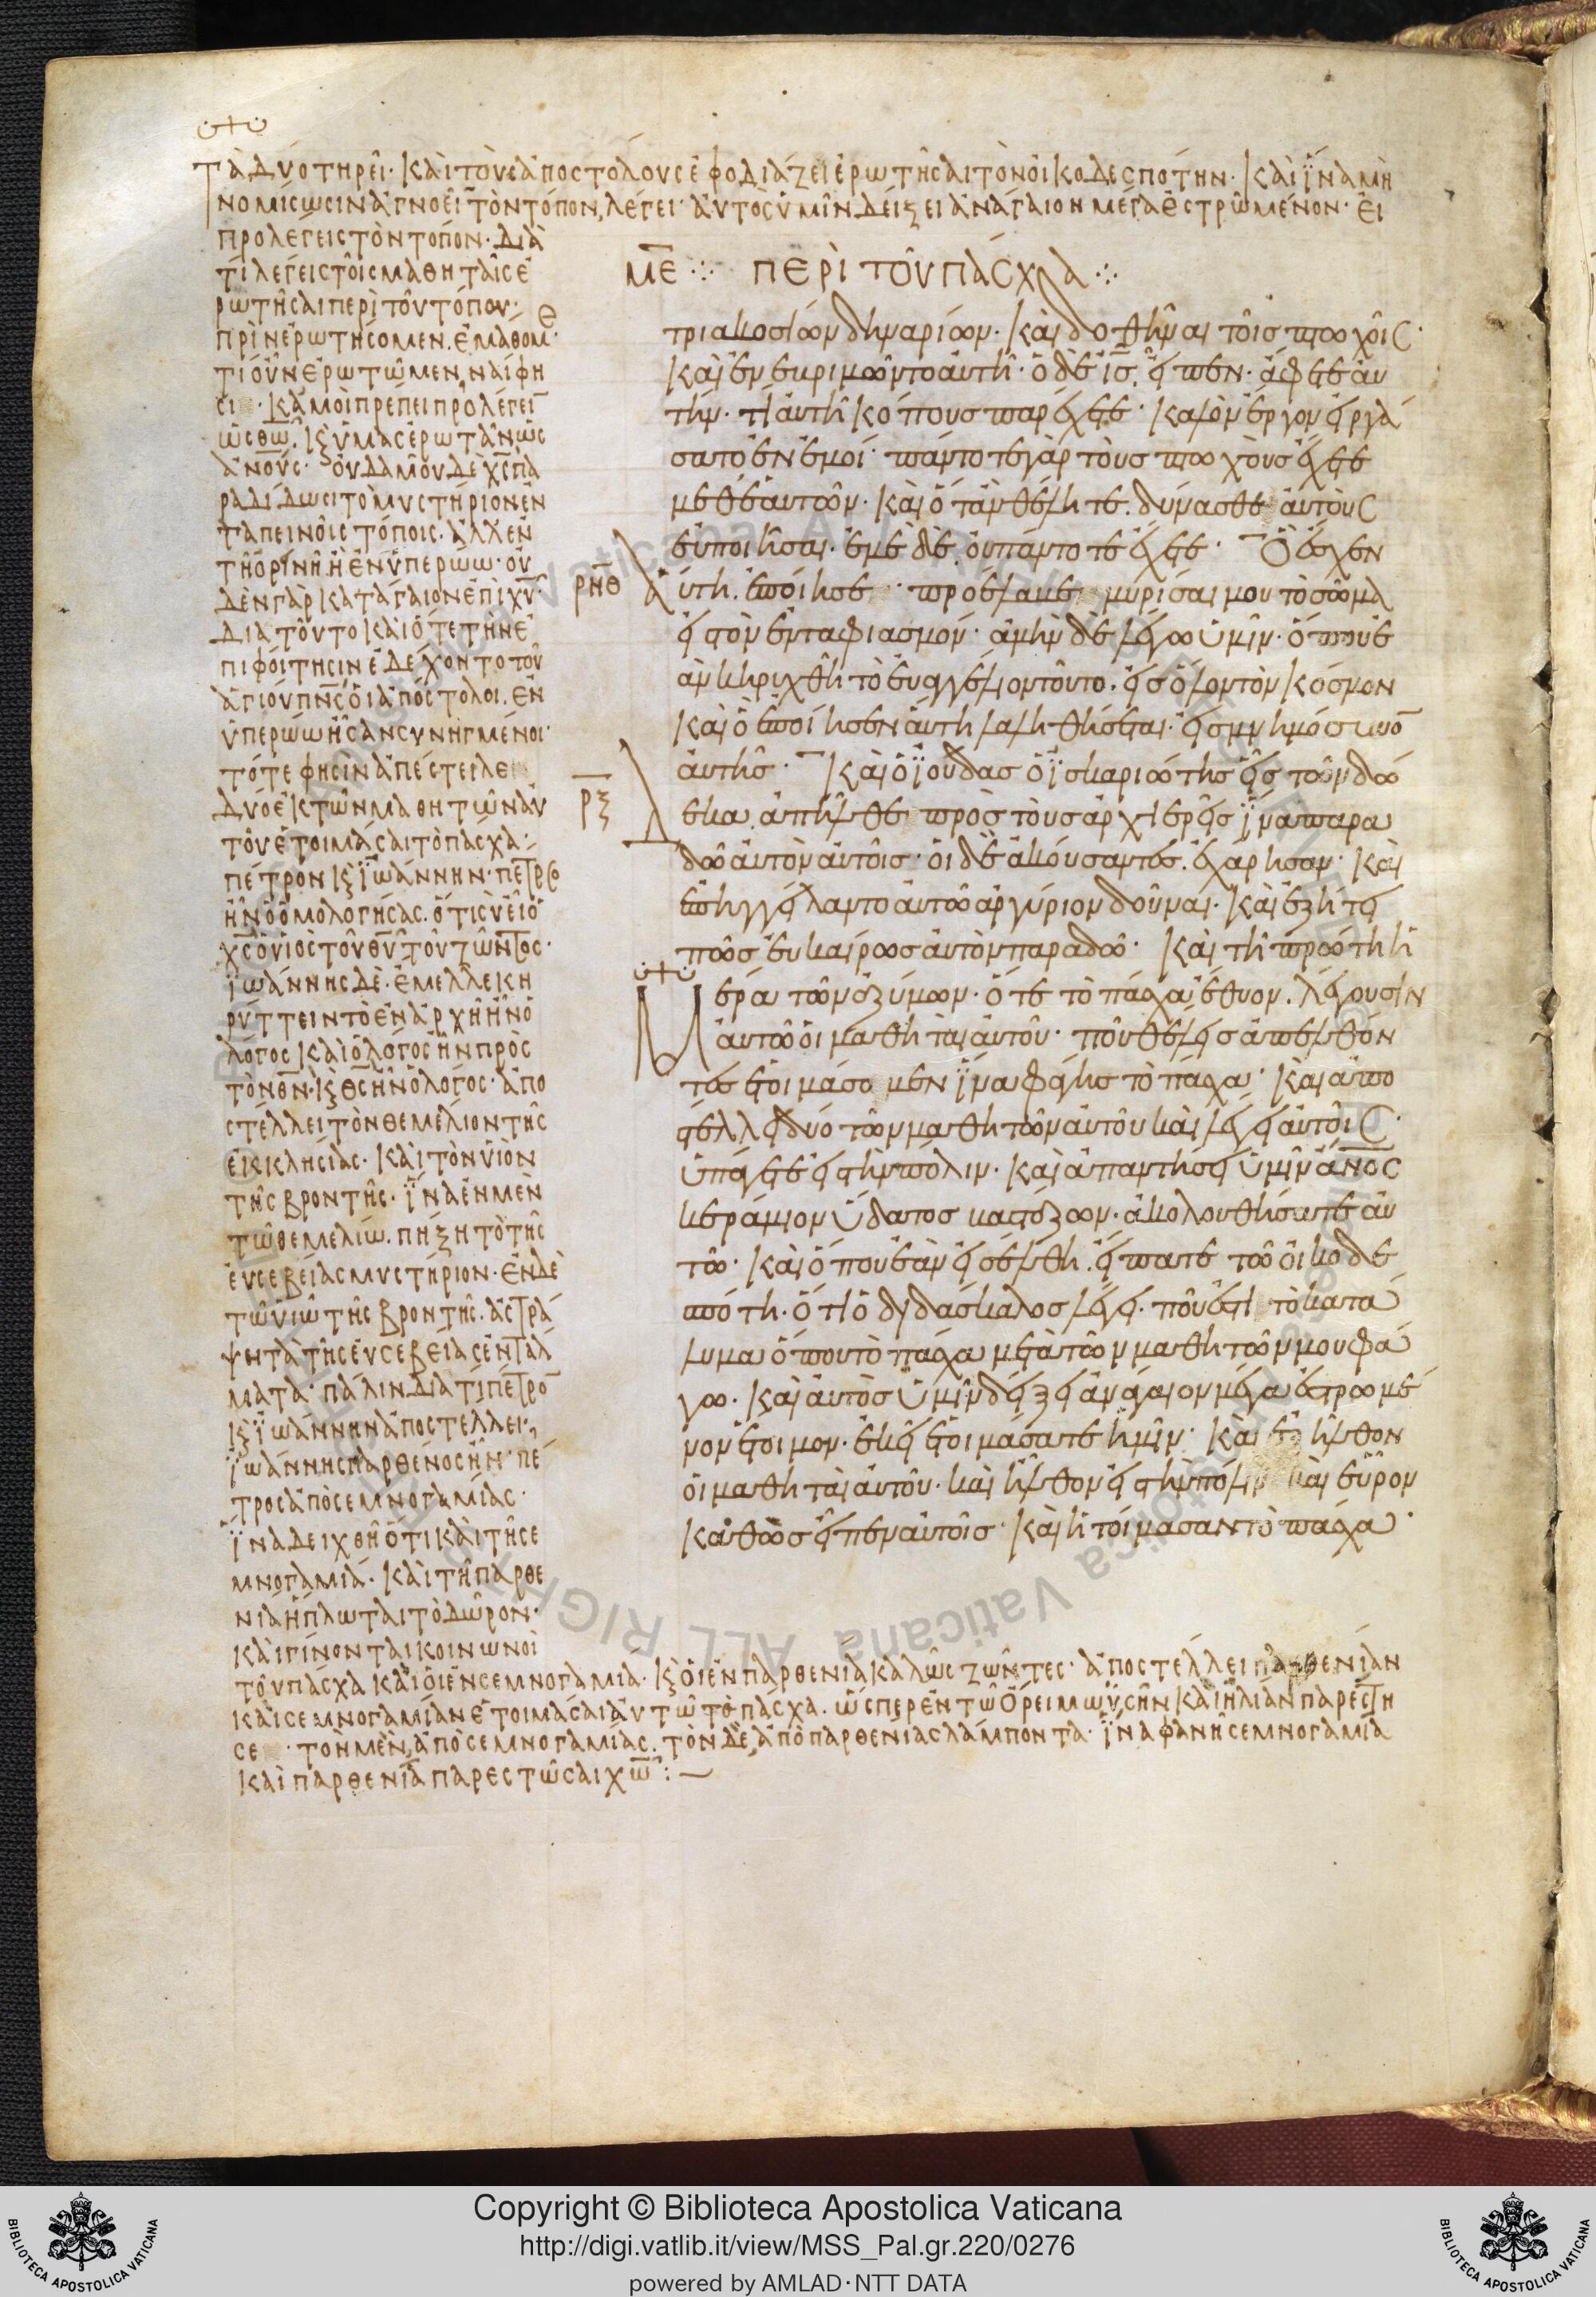 τὰ δύο τηρεῖ· καὶ τοὺς ἀποστόλους ἐφοδιάζει ἐρωτῆσαι τὸν οἰκοδεσπότην· καὶ ἵνα μὴ
νομίσωσιν ἀγνοεῖ τὸν τόπον, λέγει· αὐτὸς ὑμῖν δείξει ἀνάγαιον μέγα ἐστρωμένον· εἰ
προλέγεις τὸν τόπον· διὰ
τί λέγεις τοῖς μαθηταῖς ἐ
ρωτῆσαι περὶ τοῦ τόπου·
πρὶν ἐρωτήσομεν. ἐμάθομ
τί οὖν ἐρωτῶμεν, ναί φη
σι· κἀμοὶ πρέπει προλέγει
ὡς θω. κς ὑμᾶς ἐρωτᾶν ὡς
ανους· οὐδαμοῦ δὲ χς πα
ραδίδωσι τὸ μυστήριον ἐν
ταπεινοῖς τόποις. ἀλλ' ἐν
τῇ ὀρινῇ. ἢ ἐν ὑπερώω· οὐ
δὲν γὰρ κατάγαιον ἐπὶ χυ·
διατοῦτο καὶ ὅτε τὴν ἐ
πιφοίτησιν ἐδέχοντο τοῦ
ἁγίου πνς οἱ ἀπόστολοι. ἐν
ὑπερώω ἦσαν συνηγμένοι·
τότε φησὶν ἀπέστειλε
δύο ἐκ τῶν μαθητῶν αὐ
τοῦ ἑτοιμάσαι τὸ πάσχα·
πέτρον κς ἰωάννην· πέτρο
ἦν ὁ ὁμολογήσας. ὅτι συ εἶ ὁ
χς ὁ υἱὸς τοῦ θυ τοῦ ζῶντος·
ἰωάννης δὲ· ἔμελλε κη
ρύττειν τὸ ἐν ἀρχῇ ἦν ὁ
λόγος καὶ ὁ λόγος ἦν πρὸς
τὸν θν· κς θς ἦν ὁ λόγος· ἀπο
στέλλει τὸν θεμέλιον τῆς
ἐκκλησίας· καὶ τὸν υἱὸν
τῆς βροντῆς· ἵνα ἐν μὲν
τῶ θεμελίω. πήξη τὸ τῆς
εὐσεβείας μυστήριον· ἐν δὲ
τῶ υἱῶ τῆς βροντῆς. ἀστρά
ψη τὰ τῆς εὐσεβείας ἐντάλ
ματα· πάλιν διατί πέτρο
κς ἰωάννην ἀποστέλλει·
ἰωάννης παρθένος ἦν· πέ
τρος ἀπὸ σεμνογαμίας·
ἵνα δειχθῆ ὅτι καὶ τῆ σε
μνογαμία· καὶ τῆ παρθε
νία ἥπλωται τὸ δῶρον·
καὶ γίνονται κοινωνοὶ
τοῦ πάσχα καὶ οἱ ἐν σεμνογαμία· κς οἱ ἐν παρθενία καλῶς ζῶντες· ἀποστέλλει παρθενίαν
καὶ σεμνογαμίαν ἑτοιμάσαι αὐτῶ τὸ πάσχα. ὥσπερ ἐν τῶ ὄρει μωύσῆν καὶ ἠλίαν παρέστη
σε· τὸν μὲν, ἀπὸ σεμνογαμίας. τὸν δὲ, ἀπὸ παρθενίας λάμποντα· ἵνα φανῆ σεμνογαμία
καὶ παρθενία παρεστῶσαι χω:
με ·:· περὶ τοῦ πάσχα ·:·
τριακοσίων δηναρίων· καὶ δοθῆναι τοῖς πτωχοῖς·
καὶ ἐνεβριμῶντο αὐτῆ· ὁ δὲ ις εἶπεν· ἄφετε αὐ
τήν· τί αὐτῆ κόπους παρέχετε· καλὸν ἔργον εἰργά
σατο ἐν ἐμοί· πάντοτε γὰρ τοὺς πτωχοὺς ἔχετε
μεθ' ἑαυτῶν· καὶ ὅταν θέλητε. δύνασθε αὐτοὺς
εὐποιῆσαι. ἐμὲ δὲ, οὐ πάντοτε ἔχετε· ὃ ἔσχεν
ρνθ αὕτη. ἐποίησε· προέλαμβε μυρίσαι μου τὸ σῶμα
εἰς τὸν ἐνταφιασμόν· ἀμὴν δὲ λέγω ὑμῖν· ὅπου ἐ
ὰν κηριχθῆ τὸ εὐαγγέλιον τοῦτο. εἰς ὅλον τὸν κόσμον
καὶ ὃ ἐποίησεν αὕτη λαληθήσεται· εἰς μνημόσυνο
αὐτῆς· καὶ ὁ ἰούδας ὁ ἰσκαριώτης εἷς τῶν δώ
ρξ δεκα. ἀπῆλθε πρὸς τοὺς ἀρχιερεῖς ἵνα παρα
δῶ αὐτὸν αὐτοῖς· οἱ δὲ ἀκούσαντες. ἐχάρησαν· καὶ
ἐπηγγείλαντο αὐτῶ ἀργύριον δοῦναι· καὶ ἐζήτει
πῶς εὐκαίρως αὐτὸν παραδῶ· καὶ τῆ πρώτη ἡ
μέρα τῶν ἀζύμων· ὅτε τὸ πάσχα ἔθυον. λέγουσιν
αὐτῶ οἱ μαθηταὶ αὐτοῦ· ποῦ θέλεις ἀπελθόν
τες ἑτοιμάσομεν ἵνα φάγης τὸ πάσχα· καὶ ἀπο
στέλλει δύο τῶν μαθητῶν αὐτοῦ καὶ λέγει αὐτοῖς·
ὑπάγετε εἰς τὴν πόλιν· καὶ ἀπαντήσει ὑμῖν ανος
κεράμιον ὕδατος βαστάζων· ἀκολουθήσατε αὐ
τῶ· καὶ ὅπου ἐὰν εἰσέλθη. εἴπατε τῶ οἰκοδε
σπότη· ὅτι ὁ διδάσκαλος λέγει. ποῦ ἐστι τὸ κατά
λυμα ὅπου τὸ πάσχα μετὰ τῶν μαθητῶν μου φά
γω· καὶ αὐτὸς ὑμῖν δείξει ἀνάγαιον μέγα ἐστρωμέ
νον ἕτοιμον· ἐκεῖ ἑτοιμάσατε ἡμῖν· καὶ ἐξῆλθον
οἱ μαθηταὶ αὐτοῦ· καὶ ἦλθον εἰς τὴν πόλιν καὶ εὗρον
καθὼς εἶπεν αὐτοῖς· καὶ ἡτοίμασαν τὸ πάσχα·
Copyright © Biblioteca Apostolica Vaticana
http://digi.vatlib.it/view/MSS_Pal.gr.220/0276
powered by AMLAD·NTT DATA
BIBLIOTECA APOSTOLICA VATICANA
BIBLIOTECA APOSTOLICA VATICANA